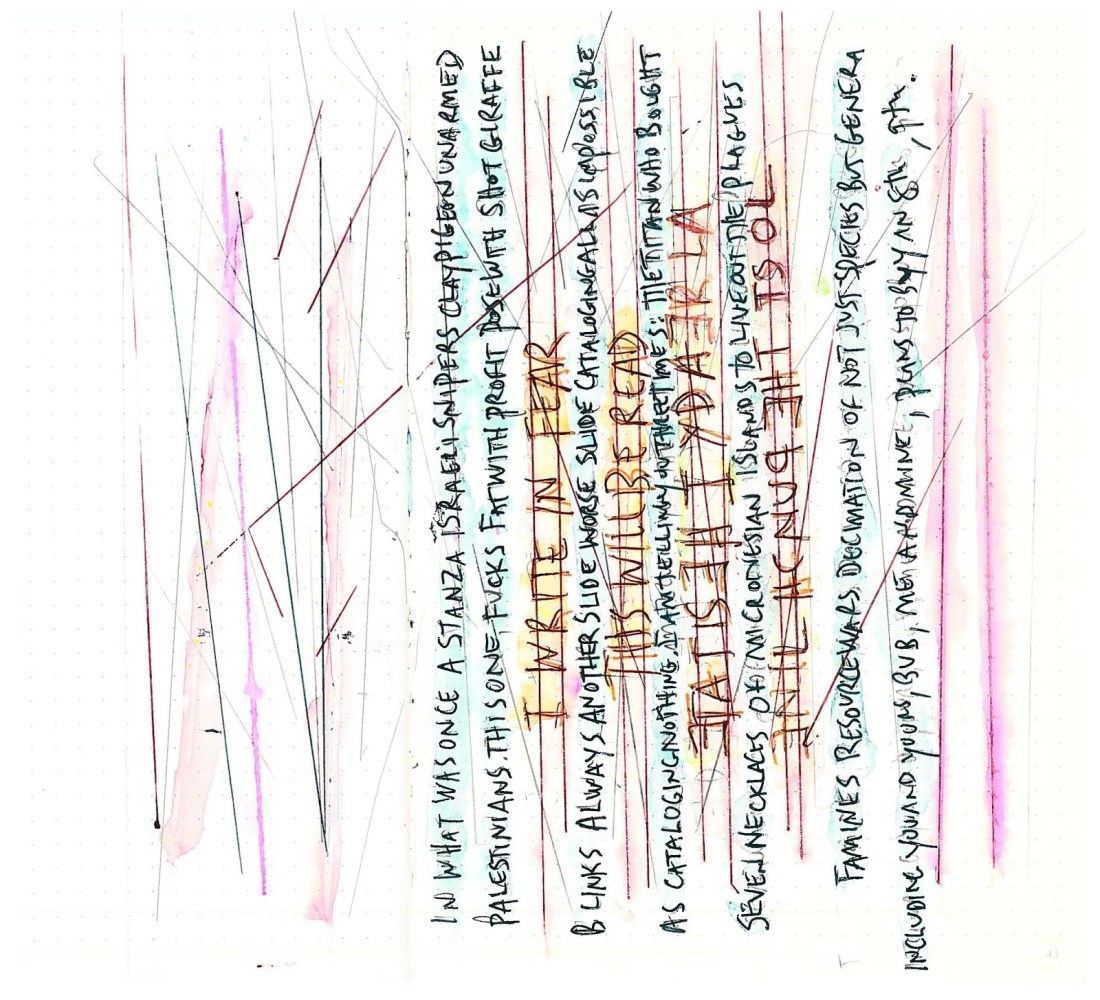 IN WHAT WAS ONCE A STANZA ISRAELI SNIPERS CLAYPIGEON UNARMED
PALESTINIANS. THIS ONE, FUCKS FAT WITH PROFIT POSE WITH SHOT GIRAFFE
I WRITE IN FEAR
BLINKS ALWAYS ANOTHER SLIDE WORSE SLIDE CATALOGING ALL AS IMPOSSIBLE
THIS WILL BE READ
AS CATALOGING NOTHING. I AM TELLING YOU THE TITAN WHO BOUGHT
YDAERLA
SEVEN NECKLACES OF MICRONESIAN ISLANDS TO LIVE OUT THE PLAGUES
ENIL HCNUP EHT SI OL
FAMINES RESOURCE WARS, DECIMATION OF NOT JUST SPECIES BUT GENERA
INCLUDING YOU AND YOURS, BUB, ME AND MINE, PLANS TO BUY AN 8th, 9th.
43